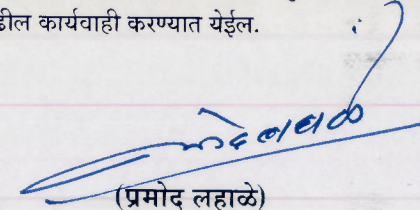 ढील कार्यवाही करण्यात येईल.
(प्रमोद लहाळे)